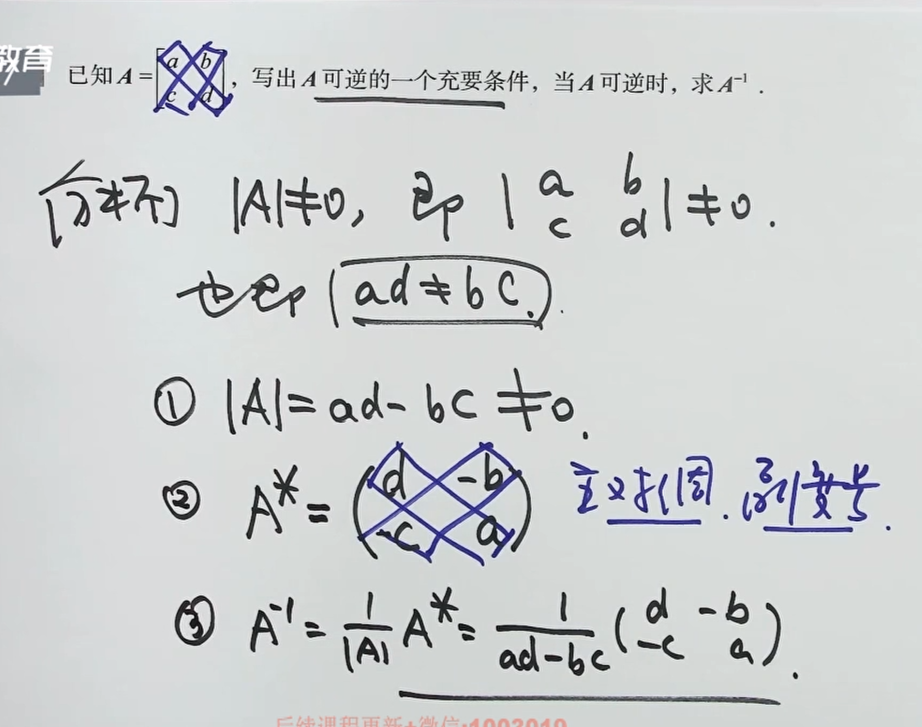 教育
已知 A = [a b; c d], 写出 A 可逆的一个充要条件, 当 A 可逆时, 求 A⁻¹ .
[分析] |A|≠0, 即 |a b; c d| ≠0.
也即 ad≠bc.
① |A|=ad-bc≠0.
② A*=(d -b; -c a) 主对调. 副变号.
③ A⁻¹=1/|A| A*=1/(ad-bc) (d -b; -c a).
后续课程更新+微信:1003010